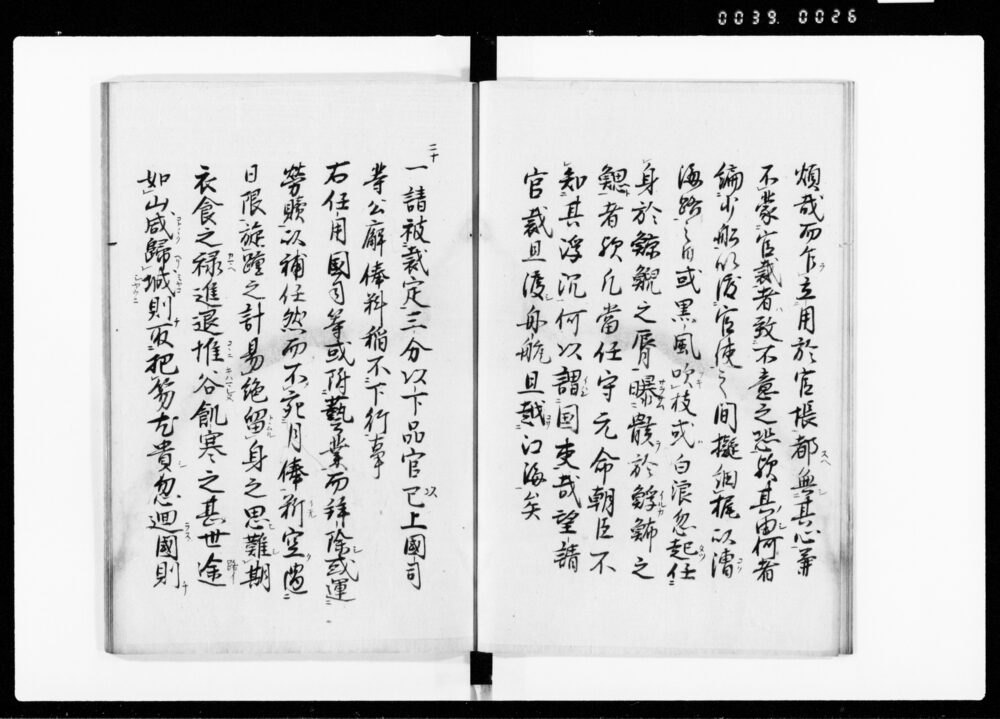 0039. 0026
煩哉而乍立用於官帳都無其心兼
不蒙官裁者致不意之恐欤其由何者
編小船以渡官使之間擬調梶以漕
海路之日或黒風吹枝或白浪忽起任
身於鯨鯢之脣曝骸於鯙鮄之
鰓者欤凡當任守元命朝臣不
知其浮沉何以謂国吏哉望請
官裁且渡舟航且越江海矣
三十
一請被裁定三分以下品官已上國司
等公廨俸料稲不下行事
右任用國司等或附藝業而拜除或運
勞贖以補任然而不宛月俸新空過
日限旋踵之計易絶留身之思難期
衣食之禄進退惟谷飢寒之甚世途
如山咸歸城則取把笏尤貴忽廻國則